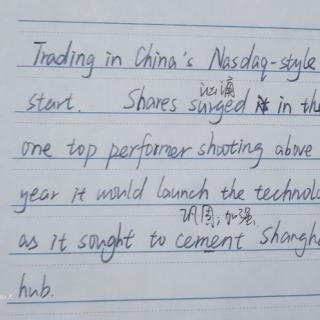 Trading in China's Nasdaq-style
汹涌
start. Shares surged in th
one top performer shooting above
year it would launch the technolo
巩固;加强
as it sought to cement Shangh
hub.